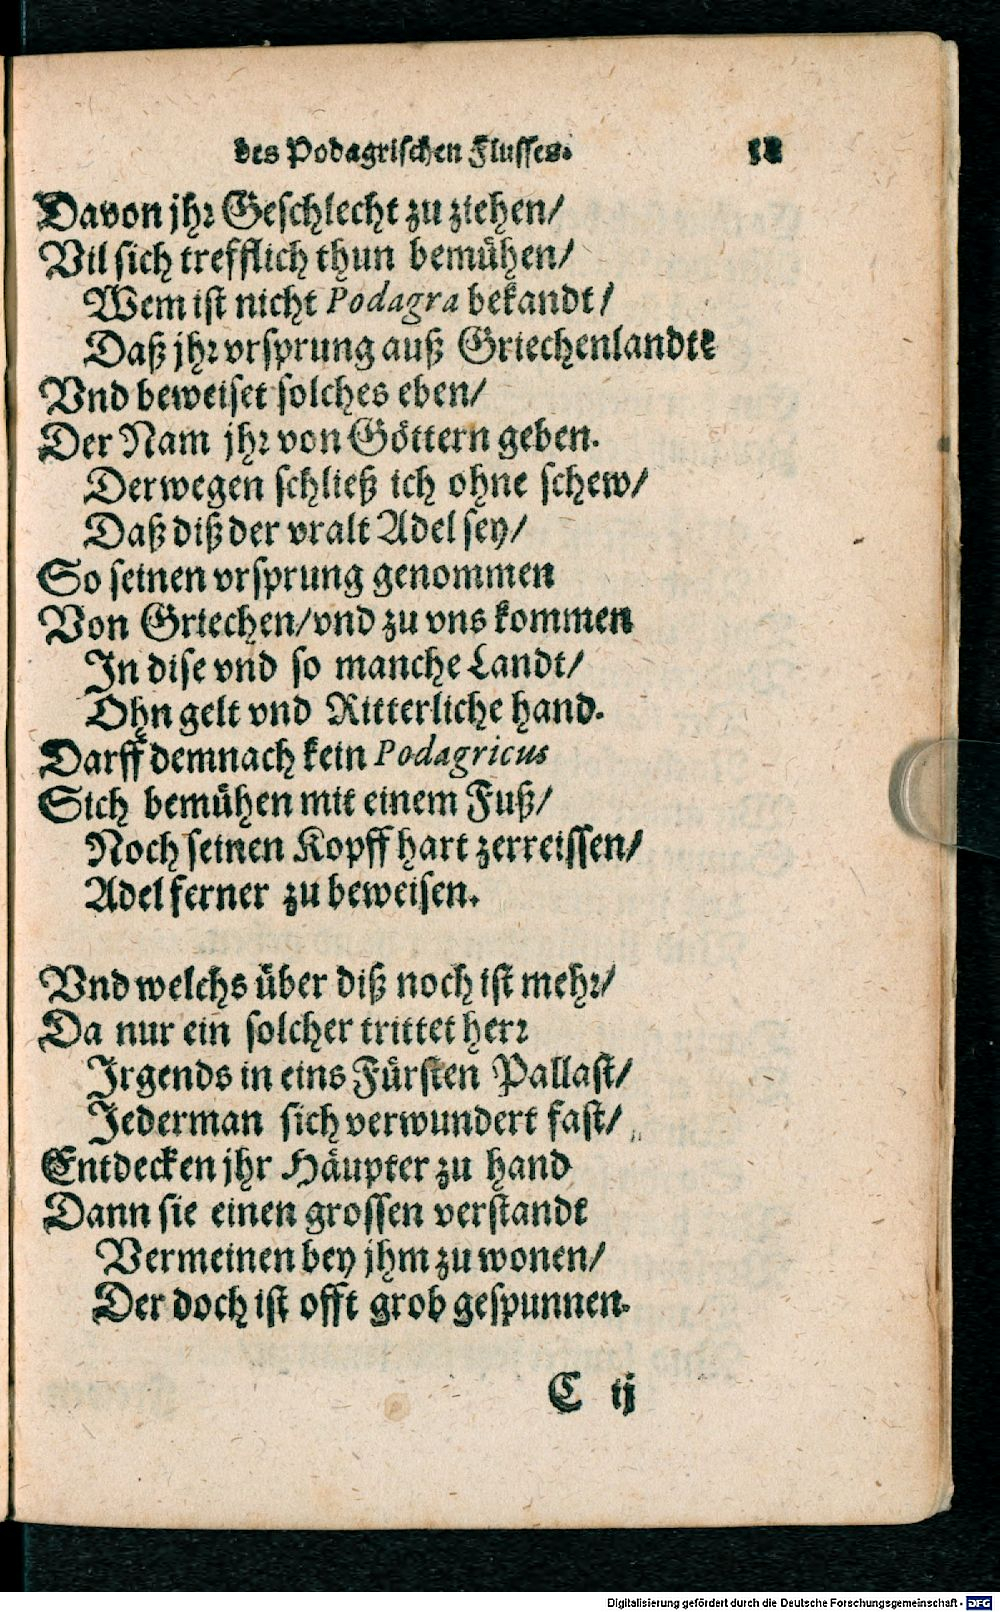 des Podagrischen Flusses. 18
Davon jhr Geschlecht zu ziehen/
Vil sich trefflich thun bemühen/
Wem ist nicht Podagra bekandt/
Daß jhr vrsprung auß Griechenlandt
Vnd beweiset solches eben/
Der Nam jhr von Göttern geben.
Derwegen schließ ich ohne schew/
Daß diß der vralt Adel sey/
So seinen vrsprung genommen
Von Griechen/vnd zu vns kommen
In dise vnd so manche Landt/
Ohn gelt vnd Ritterliche hand.
Darff demnach kein Podagricus
Sich bemühen mit einem Fuß/
Noch seinen Kopff hart zerreissen/
Adel ferner zu beweisen.
Vnd welchs über diß noch ist mehr/
Da nur ein solcher trittet herr
Irgends in eins Fürsten Pallast/
Jederman sich verwundert fast/
Entdecken jhr Häupter zu hand
Dann sie einen grossen verstandt
Vermeinen bey jhm zu wonen/
Der doch ist offt grob gespunnen.
C ij
Digitalisierung gefördert durch die Deutsche Forschungsgemeinschaft - DFG